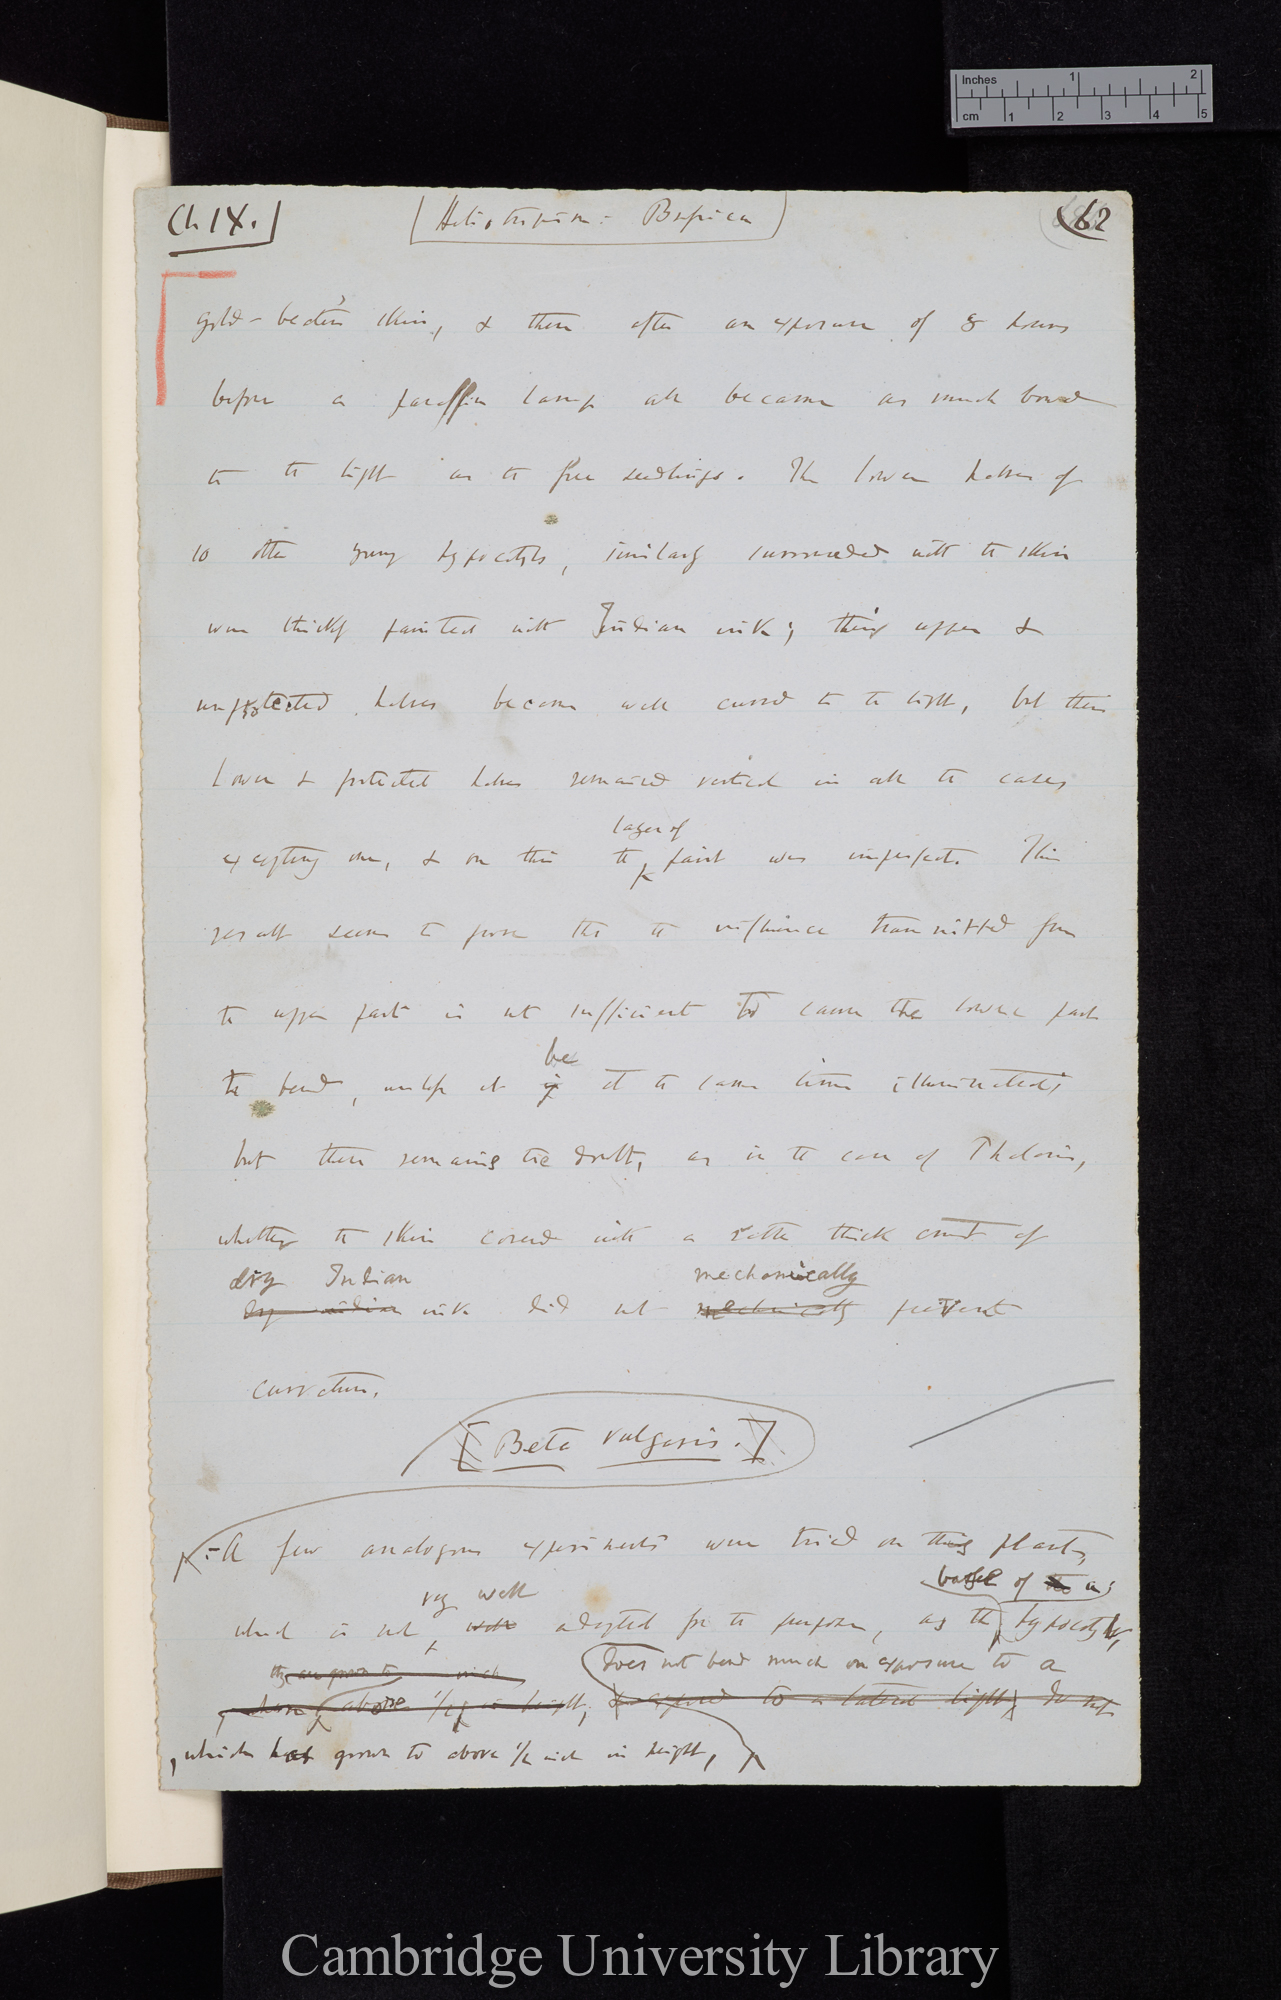 Ch IX.
Heliotropism: Brassica
62
Inches 1 2
cm 1 2 3 4 5
gold-beaters' skin, & then after an exposure of 8 hours
before a paraffin lamp all became as much bowed
to the light as the free seedlings. The lower halves of
10 other young hypocotyls, similarly surrounded with the skin
were thickly painted with Indian ink; their upper &
unprotected halves became well curved to the light, but their
lower & protected halves remained vertical in all the cases
layer of
excepting one, & on this the paint was imperfect. This
result seems to prove that the influence transmitted from
the upper part is not sufficient to cause the lower part
be
to bend, unless it is at the same time illuminated;
but there remains the doubt, as in the case of Phalaris,
whether the skin covered with a rather thick coat of
dry Indian mechanically
dry indian ink did not mechanically prevent
curvature.
[Beta vulgaris.]
A few analogous experiments were tried on this plant,
very well of the
which is not well adapted for the purpose, as the hypocotyl,
does not bend much on exposure to a
above 1/2 in height, & exposed to a lateral light, do not
, which has grown to above 1/2 inch in height,
Cambridge University Library